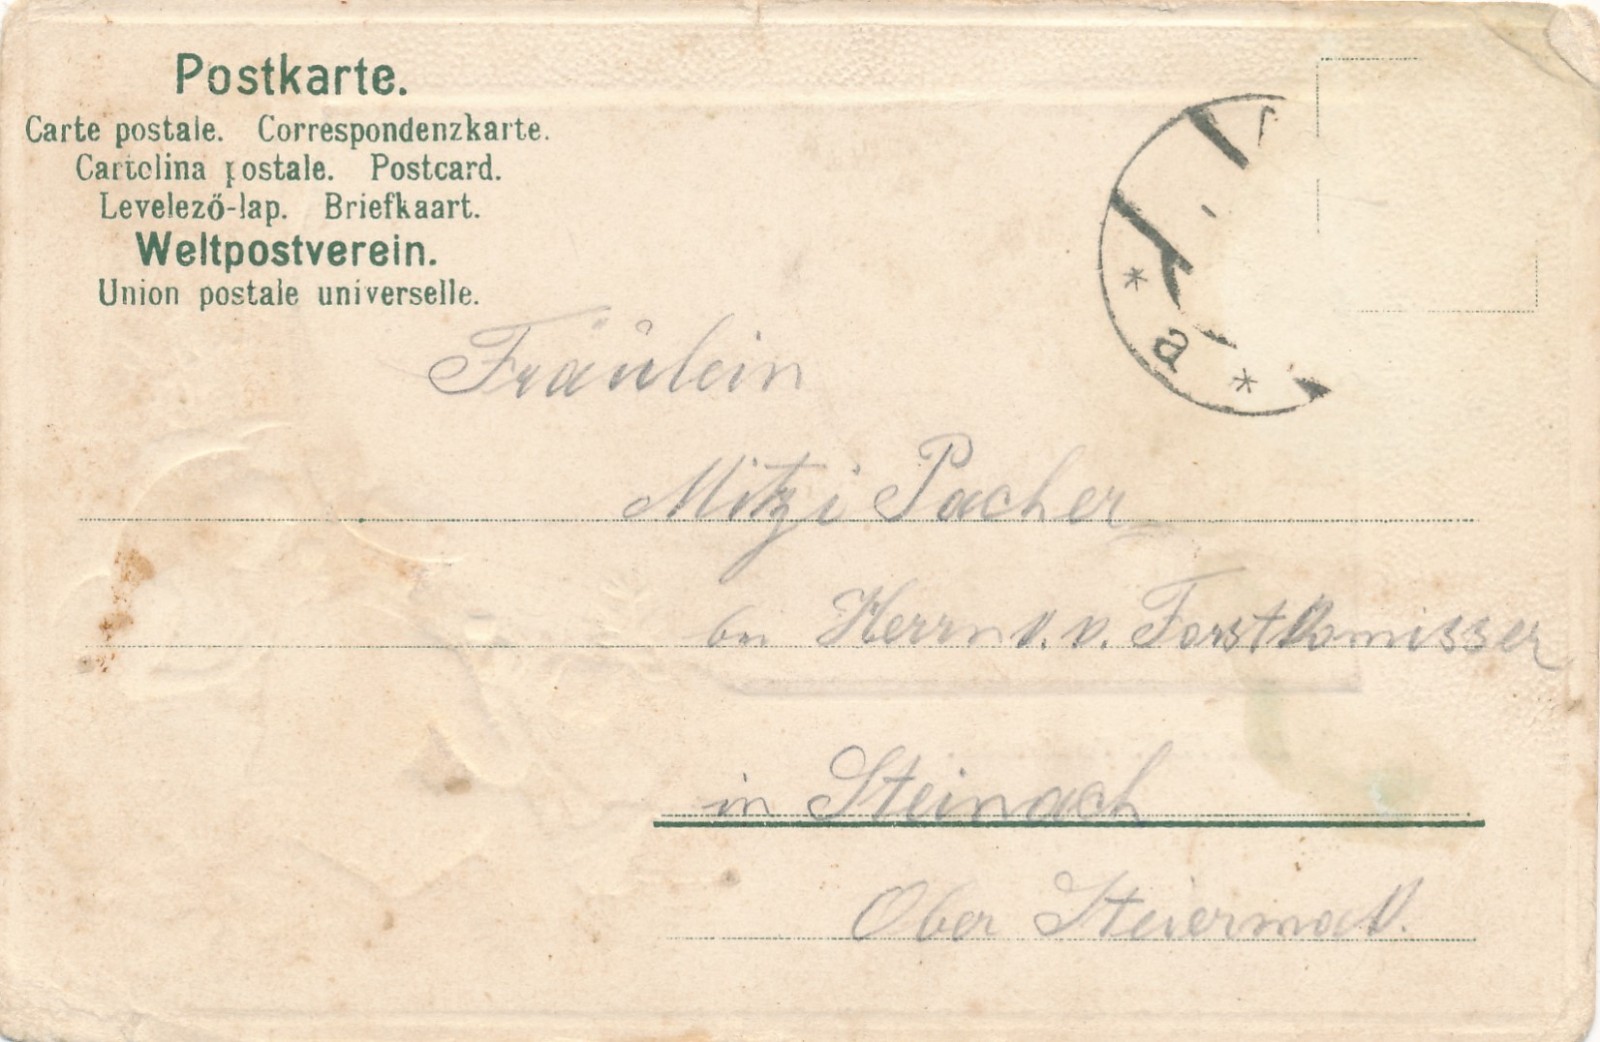 Postkarte.
Carte postale. Correspondenzkarte.
Cartolina postale. Postcard.
Levelező-lap. Briefkaart.
Weltpostverein.
Union postale universelle.
a
Fräulein
Mitzi Pacher
Herrn k. k. Forstkomisser
in Steinach
Ober Steiermark.